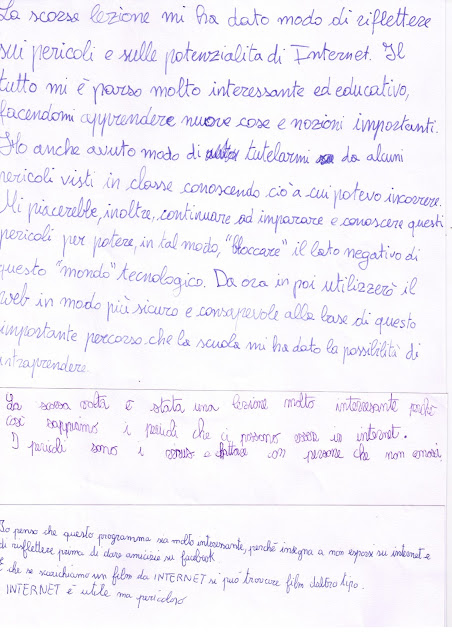 La scorsa lezione mi ha dato modo di riflettere
sui pericoli e sulle potenzialità di Internet. Il
tutto mi è parso molto interessante ed educativo,
facendomi apprendere nuove cose e nozioni importanti.
Ho anche avuto modo di tutelarmi da alcuni
pericoli visti in classe conoscendo ciò a cui potevo incorrere.
Mi piacerebbe, inoltre, continuare ad imparare e conoscere questi
pericoli per potere, in tal modo, "bloccare" il lato negativo di
questo "mondo" tecnologico. Da ora in poi utilizzerò il
web in modo più sicuro e consapevole alla base di questo
importante percorso che la scuola mi ha dato la possibilità di
intraprendere.
La scorsa volta è stata una lezione molto interessante perché
così sappiamo i pericoli che ci possono essere in internet.
I pericoli sono i e con persone che non conosci.
Io penso che questo programma sia molto interessante, perché insegna a non esporsi su internet e
di riflettere prima di dare amicizie su facebook.
E che se scarichiamo un film da INTERNET si può trovare film d'altro tipo.
INTERNET è utile ma pericoloso